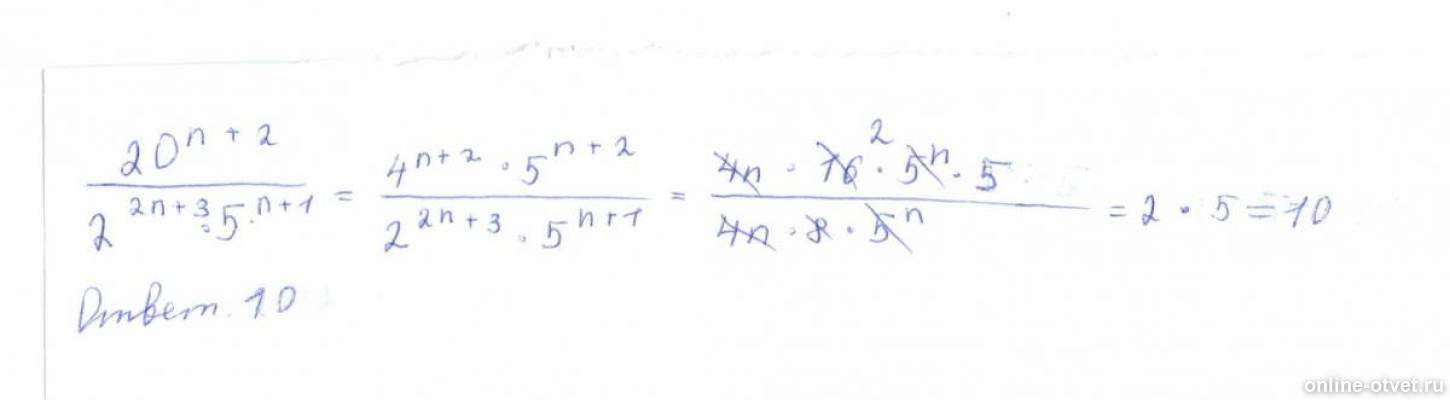 20^{n+2} / (2^{2n+3} · 5^{n+1}) = (4^{n+2} · 5^{n+2}) / (2^{2n+3} · 5^{n+1}) = (4n · 16 2 · 5^n · 5) / (4n · 8 · 5^n) = 2 · 5 = 10
Ответ. 10
online-otvet.ru